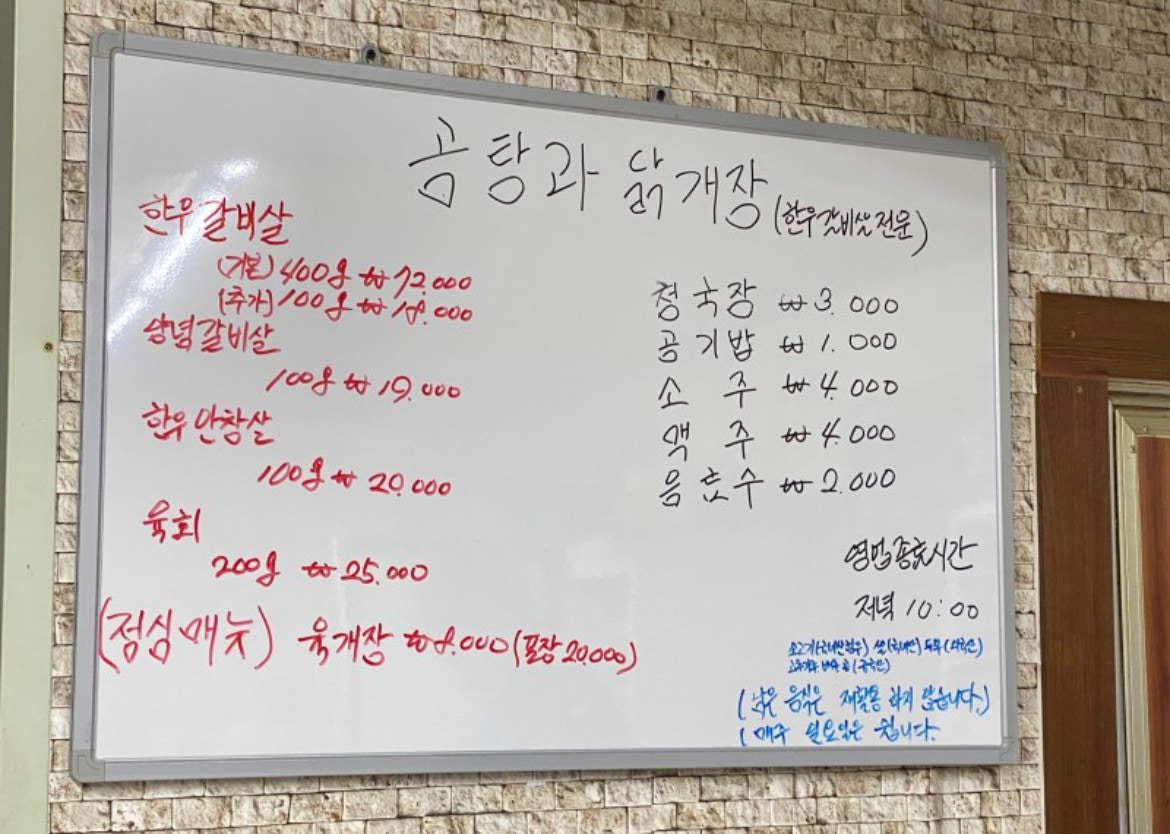 곰탕과 닭개장
(한우갈비살전문)
한우갈비살
(기본) 400g ₩72.000
(추가) 100g ₩18.000
양념갈비살
100g ₩19.000
한우안창살
100g ₩20.000
육회
200g ₩25.000
(점심메뉴) 육개장 ₩8.000 (포장 20.000)
청국장 ₩3.000
공기밥 ₩1.000
소주 ₩4.000
맥주 ₩4.000
음료수 ₩2.000
영업종료시간
저녁 10:00
소고기(국내산한우) 쌀(국내산) 두부(외국산)
(남은 음식은 재활용 하지 않습니다.)
(매주 월요일은 쉽니다.